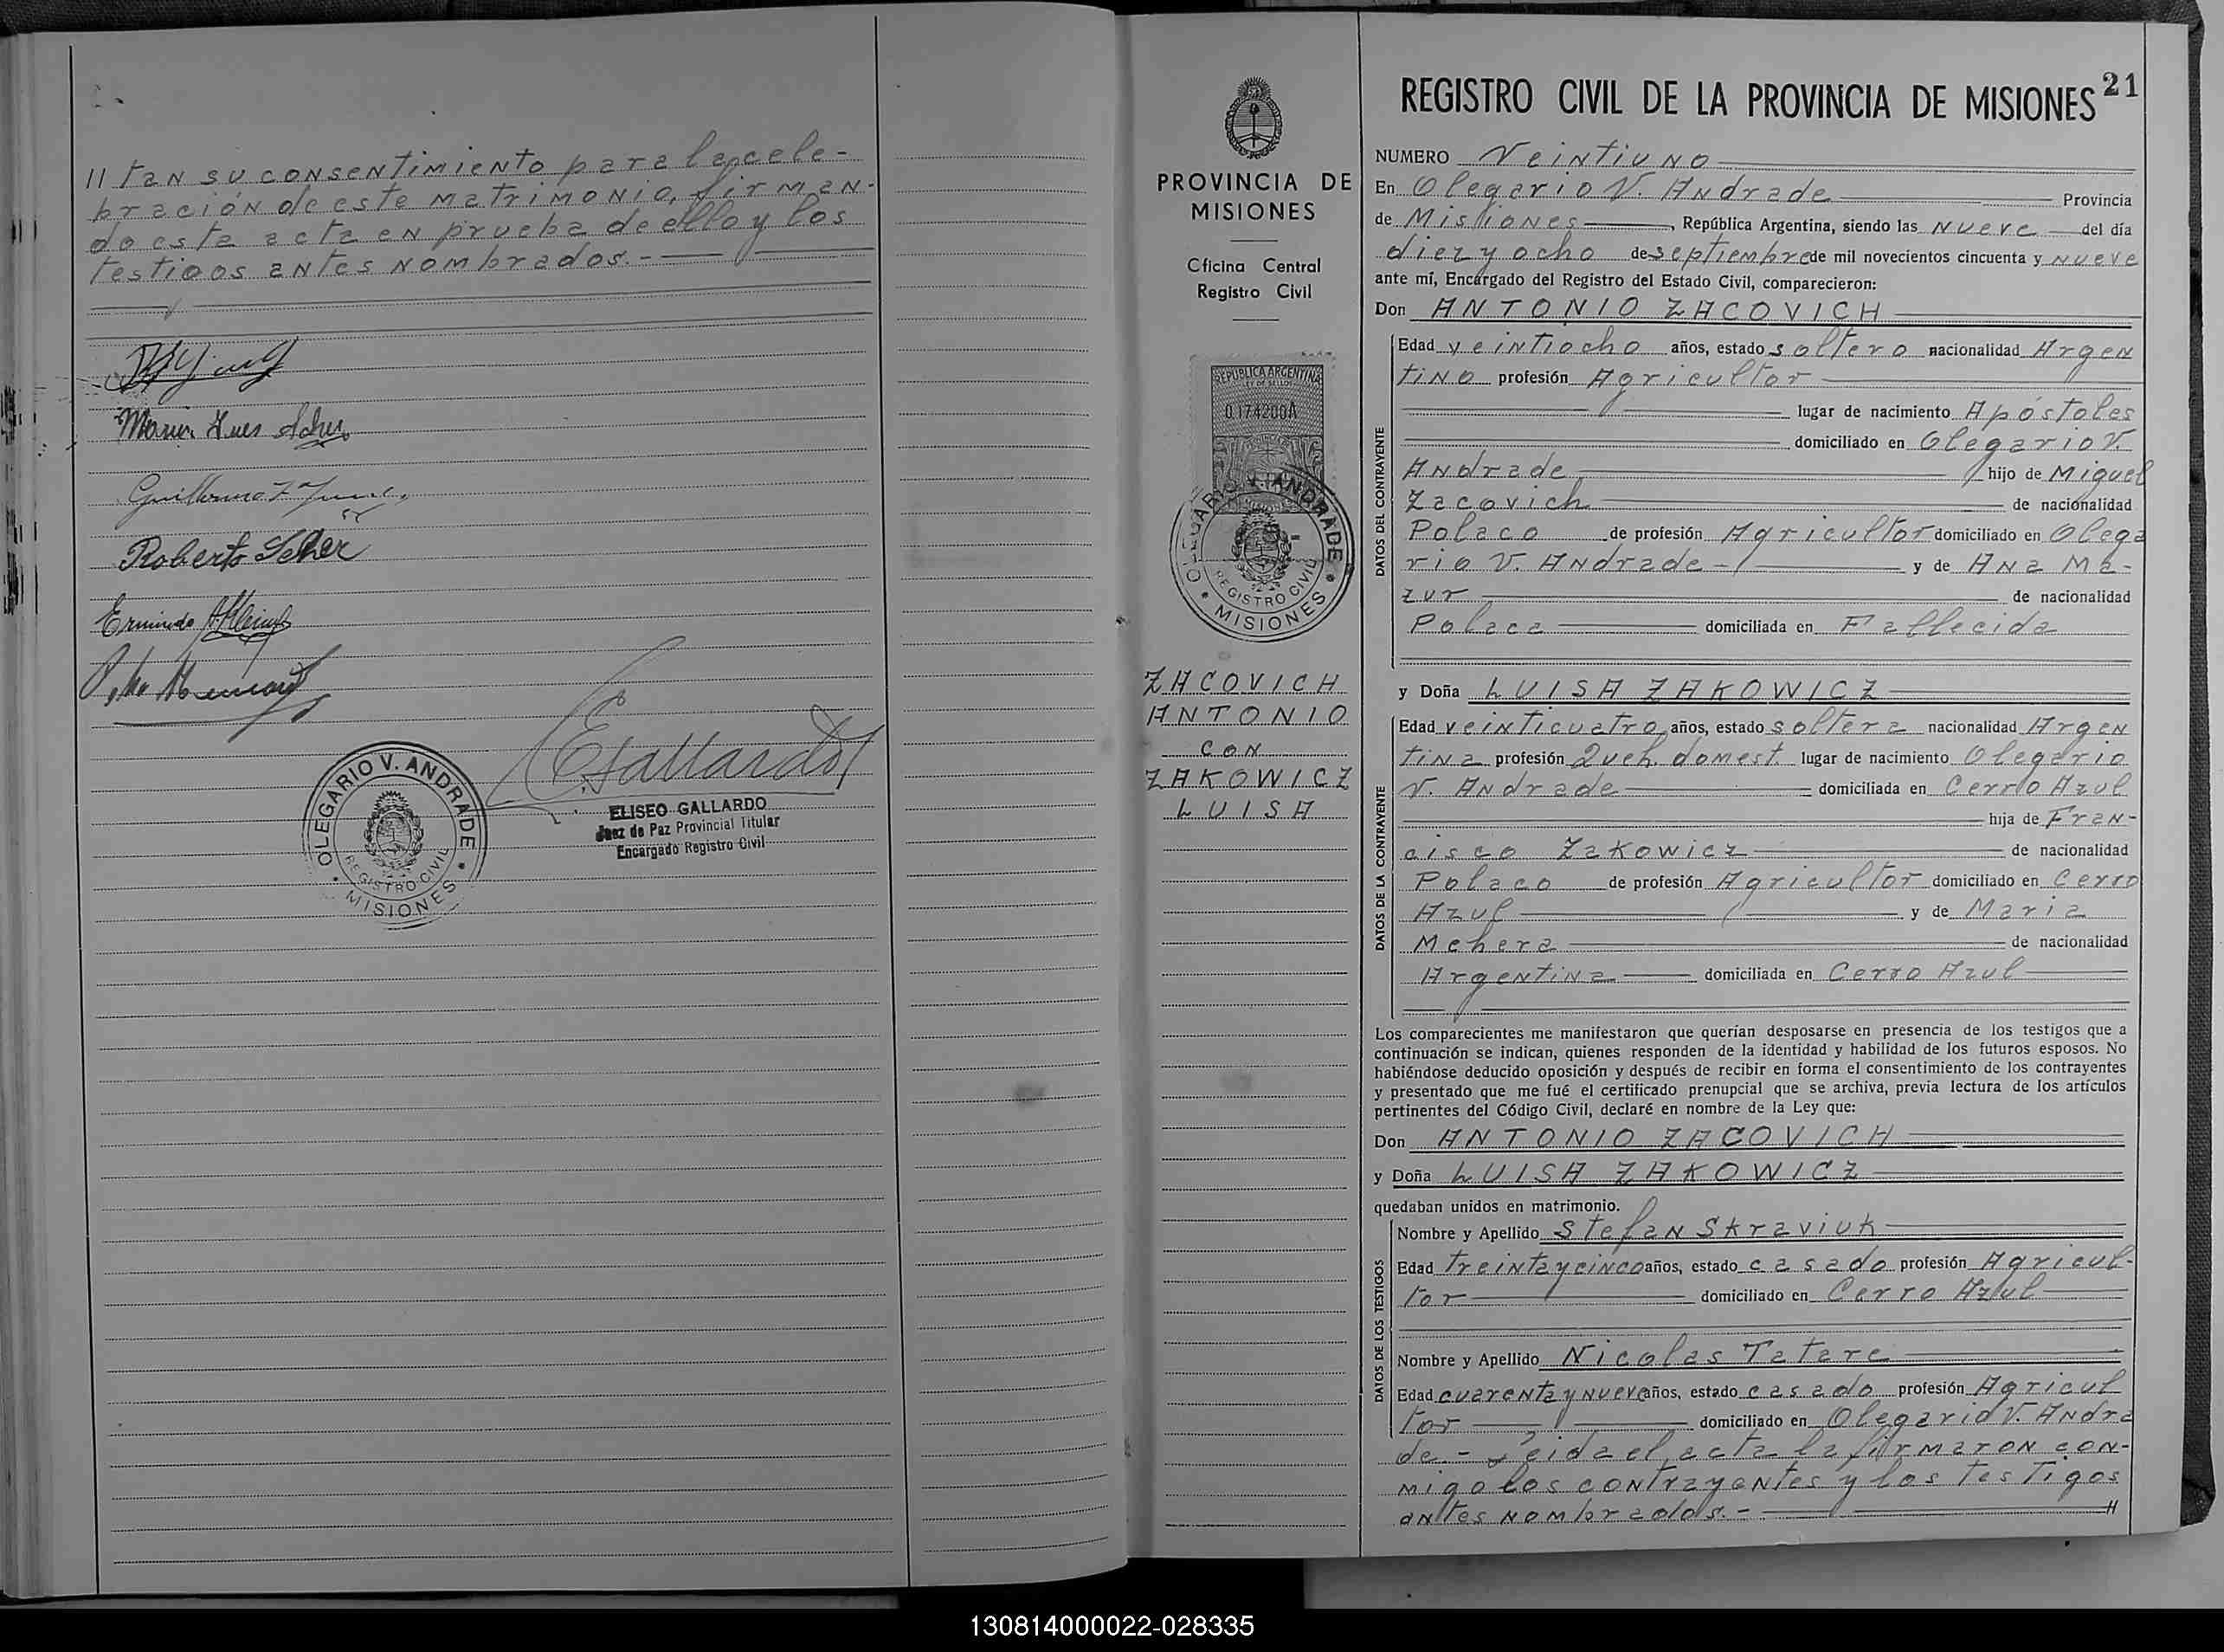 // tan su consentimiento para la cele-
bración de este matrimonio, firman-
do esta acta en prueba de ello y los
testigos antes nombrados.-
Roberto Scher
OLEGARIO V. ANDRADE
REGISTRO CIVIL
• MISIONES •
EGallardo
ELISEO GALLARDO
Juez de Paz Provincial Titular
Encargado Registro Civil
PROVINCIA DE
MISIONES
Oficina Central
Registro Civil
REPUBLICA ARGENTINA
0.174200A
OLEGARIO V. ANDRADE
REGISTRO CIVIL
• MISIONES •
ZACOVICH
ANTONIO
CON
ZAKOWICZ
LUISA
REGISTRO CIVIL DE LA PROVINCIA DE MISIONES 21
NUMERO Veintiuno
En Olegario V. Andrade Provincia
de Misiones, República Argentina, siendo las nueve del día
diez y ocho de septiembre de mil novecientos cincuenta y nueve
ante mí, Encargado del Registro del Estado Civil, comparecieron:
Don ANTONIO ZACOVICH
DATOS DEL CONTRAYENTE
Edad veintiocho años, estado soltero nacionalidad Argen
tino profesión Agricultor
lugar de nacimiento Apóstoles
domiciliado en Olegario V.
Andrade hijo de Miguel
Zacovich de nacionalidad
Polaco de profesión Agricultor domiciliado en Olega
rio V. Andrade - y de Ana Ma-
zur de nacionalidad
Polaca domiciliada en Fallecida
y Doña LUISA ZAKOWICZ
DATOS DE LA CONTRAYENTE
Edad veinticuatro años, estado soltera nacionalidad Argen
tina profesión Queh. domest. lugar de nacimiento Olegario
V. Andrade domiciliada en Cerro Azul
hija de Fran-
cisco Zakowicz de nacionalidad
Polaco de profesión Agricultor domiciliado en Cerro
Azul y de Maria
Mehera de nacionalidad
Argentina domiciliada en Cerro Azul
Los comparecientes me manifestaron que querían desposarse en presencia de los testigos que a
continuación se indican, quienes responden de la identidad y habilidad de los futuros esposos. No
habiéndose deducido oposición y después de recibir en forma el consentimiento de los contrayentes
y presentado que me fué el certificado prenupcial que se archiva, previa lectura de los artículos
pertinentes del Código Civil, declaré en nombre de la Ley que:
Don ANTONIO ZACOVICH
y Doña LUISA ZAKOWICZ
quedaban unidos en matrimonio.
DATOS DE LOS TESTIGOS
Nombre y Apellido Stefan Skraviuk
Edad treinta y cinco años, estado casado profesión Agricul-
tor domiciliado en Cerro Azul
Nombre y Apellido Nicolas Tatarc
Edad cuarenta y nueve años, estado casado profesión Agricul
tor domiciliado en Olegario V. Andra
de.- Leida el acta la firmaron con-
migo los contrayentes y los testigos
antes nombrados.- //
130814000022-028335